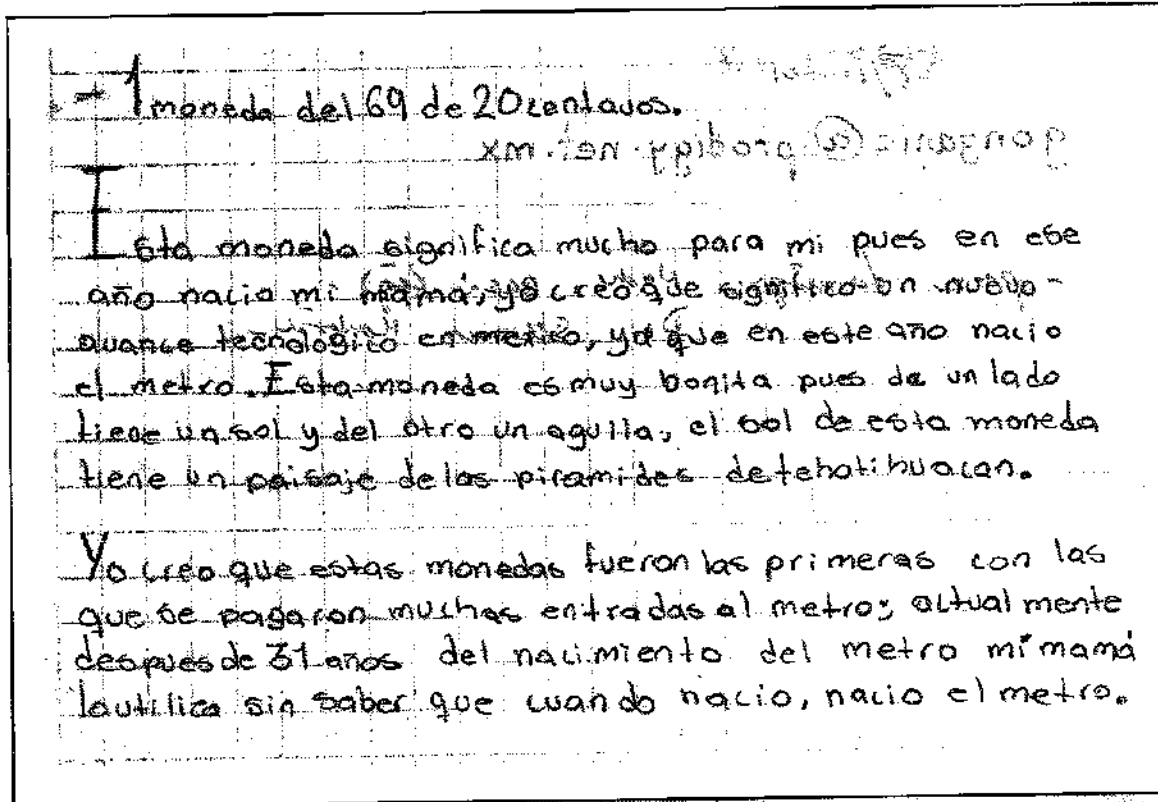 - 1 moneda del 69 de 20 centavos.
gonzanic@prodigy.net.mx
Esta moneda significa mucho para mi pues en ese
año nacio mi mamá, yo creo que significo un nuevo -
avance tecnologico en mexico, ya que en este año nacio
el metro. Esta moneda es muy bonita pues de un lado
tiene un sol y del otro un aguila, el sol de esta moneda
tiene un paisaje de las piramides de tehotihuacan.
Yo creo que estas monedas fueron las primeras con las
que se pagaron muchas entradas al metro; actual mente
despues de 31 años del nacimiento del metro mi mamá
lo utiliza sin saber que cuando nacio, nacio el metro.